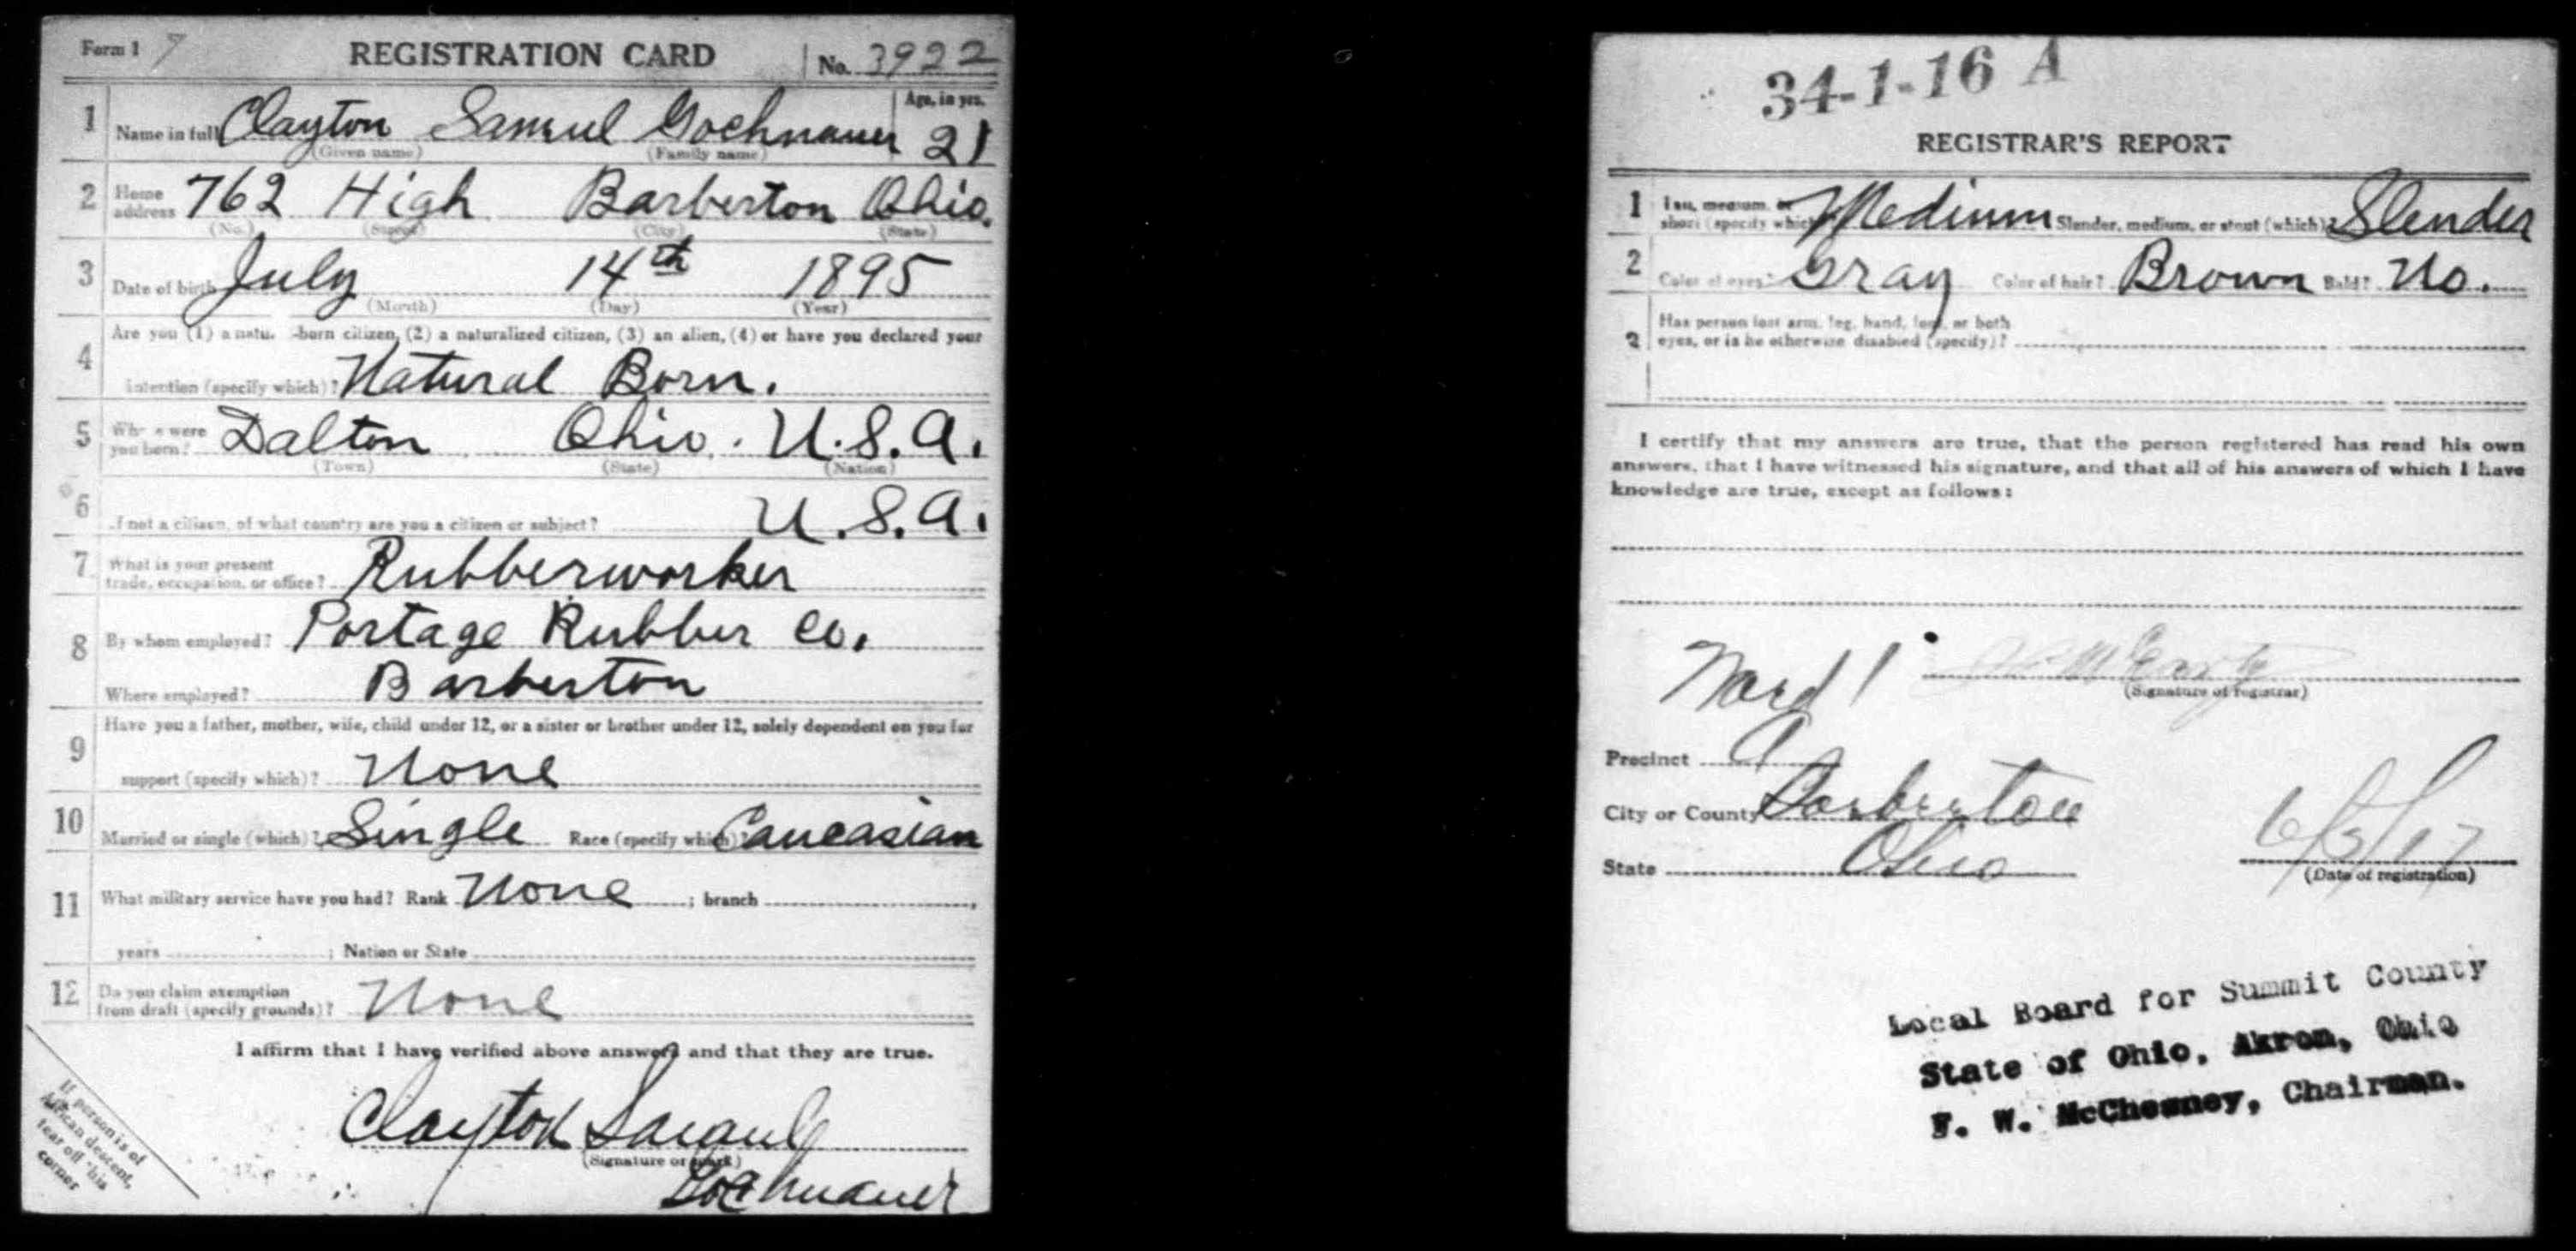 Form 1 7 REGISTRATION CARD No. 3922
1 Name in full Clayton Samuel Gochnauer Age, in yrs. 21
(Given name) (Family name)
2 Home address 762 High Barberton Ohio.
(No.) (Street) (City) (State)
3 Date of birth July 14th 1895
(Month) (Day) (Year)
Are you (1) a natu. -born citizen, (2) a naturalized citizen, (3) an alien, (4) or have you declared your
4 intention (specify which)? Natural Born.
5 Where were you born? Dalton Ohio. U.S.A.
(Town) (State) (Nation)
6 If not a citizen, of what country are you a citizen or subject? U.S.A.
7 What is your present
trade, occupation, or office? Rubberworker
8 By whom employed? Portage Rubber Co.
Where employed? Barberton
Have you a father, mother, wife, child under 12, or a sister or brother under 12, solely dependent on you for
9 support (specify which)? None
10 Married or single (which)? Single Race (specify which)? Caucasian
11 What military service have you had? Rank None ; branch
years ; Nation or State
12 Do you claim exemption
from draft (specify grounds)? None
I affirm that I have verified above answers and that they are true.
Clayton Samuel
(Signature or mark)
Gochnauer
If person is of
African descent,
tear off this
corner
34-1-16 A
REGISTRAR'S REPORT
1 Tall, medium, or
short (specify which)? Medium Slender, medium, or stout (which)? Slender
2 Color of eyes? Gray Color of hair? Brown Bald? No.
3 Has person lost arm, leg, hand, foot, or both
eyes, or is he otherwise disabled (specify)?
I certify that my answers are true, that the person registered has read his own
answers, that I have witnessed his signature, and that all of his answers of which I have
knowledge are true, except as follows:
Ward 1
(Signature of registrar)
Precinct A
City or County Barberton
State Ohio 6/5/17
(Date of registration)
Local Board for Summit County
State of Ohio, Akron, Ohio
F. W. McChesney, Chairman.